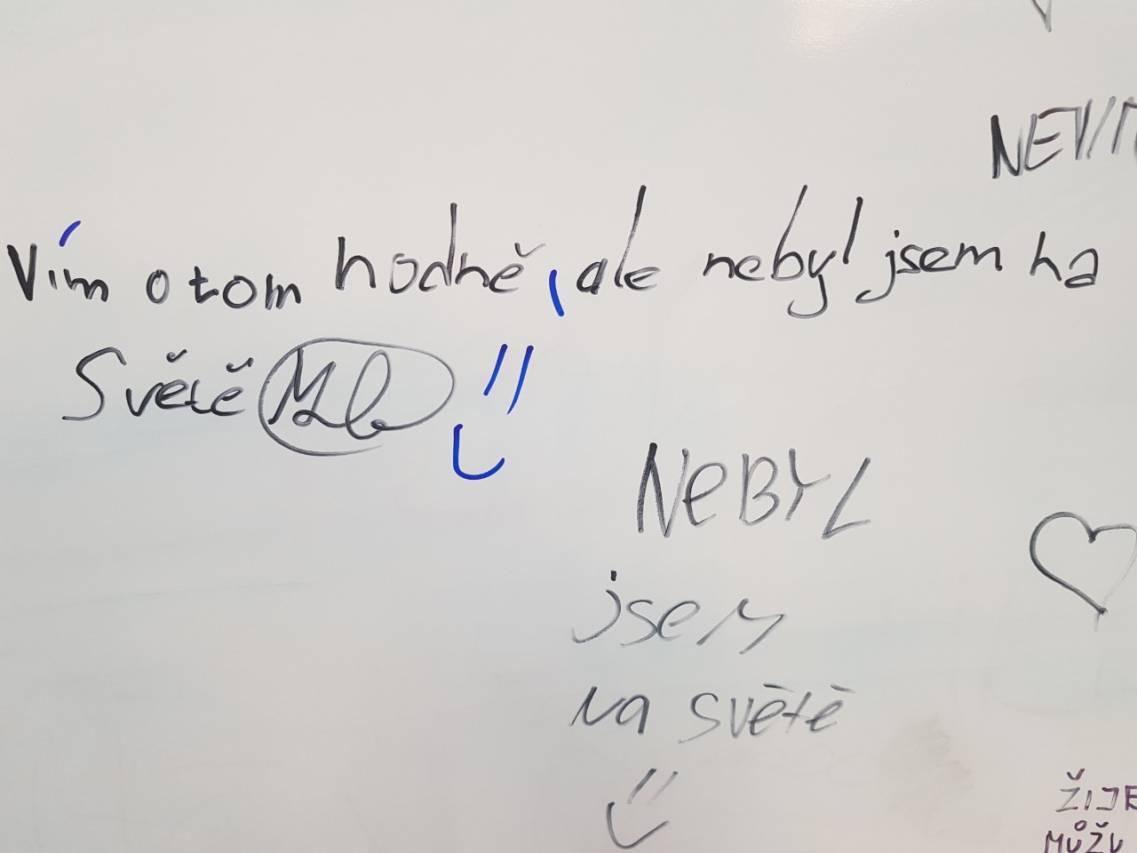 Vím o tom hodně, ale nebyl jsem na
Světě
NEBYL
jsem
na světě
ŽIJE
MŮŽU